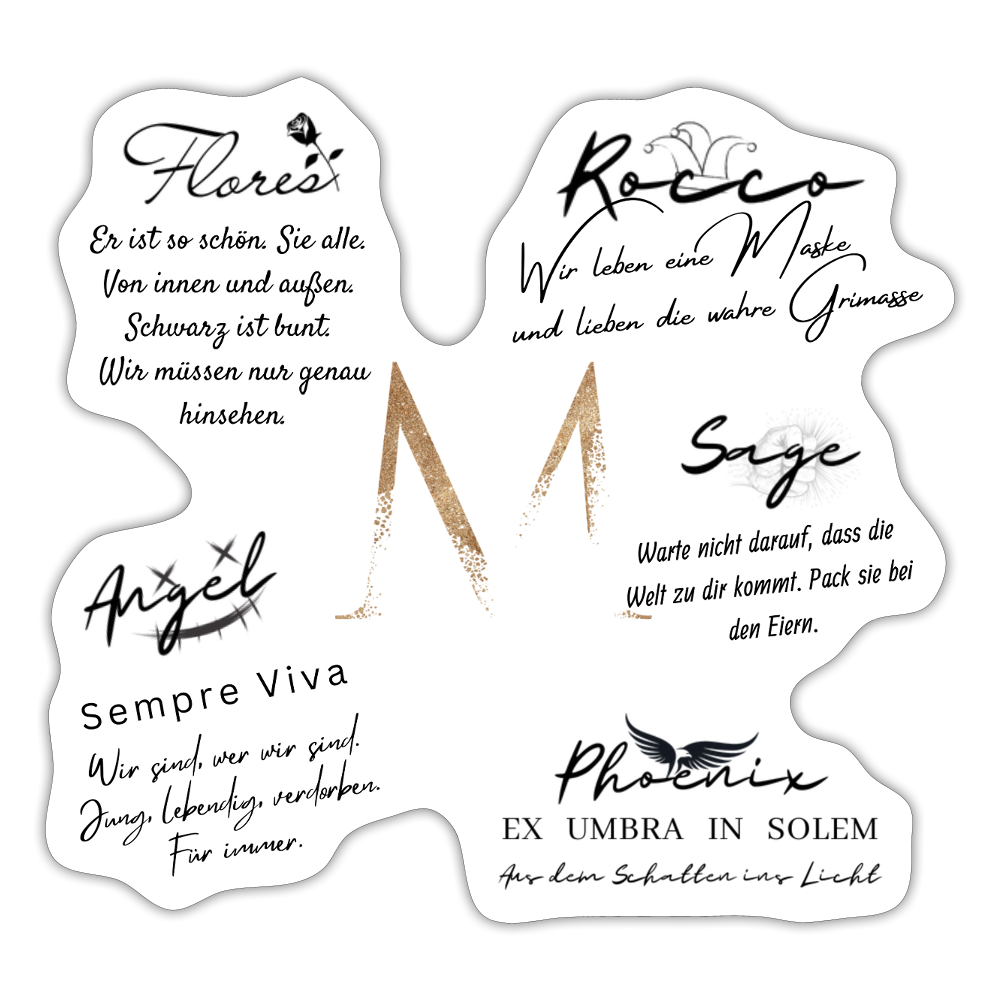 Flores
Er ist so schön. Sie alle.
Von innen und außen.
Schwarz ist bunt.
Wir müssen nur genau
hinsehen.
Rocco
Wir leben eine Maske
und lieben die wahre Grimasse
M
Sage
Warte nicht darauf, dass die
Welt zu dir kommt. Pack sie bei
den Eiern.
Angel
Sempre Viva
Wir sind, wer wir sind.
Jung, lebendig, verdorben.
Für immer.
Phoenix
EX UMBRA IN SOLEM
Aus dem Schatten ins Licht